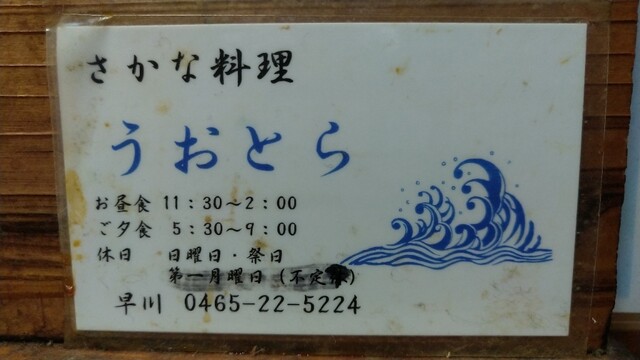 さかな料理
うおとら
お昼食 11：30～2：00
ご夕食 5：30～9：00
休日 日曜日・祭日
第一月曜日（不定
早川 0465-22-5224